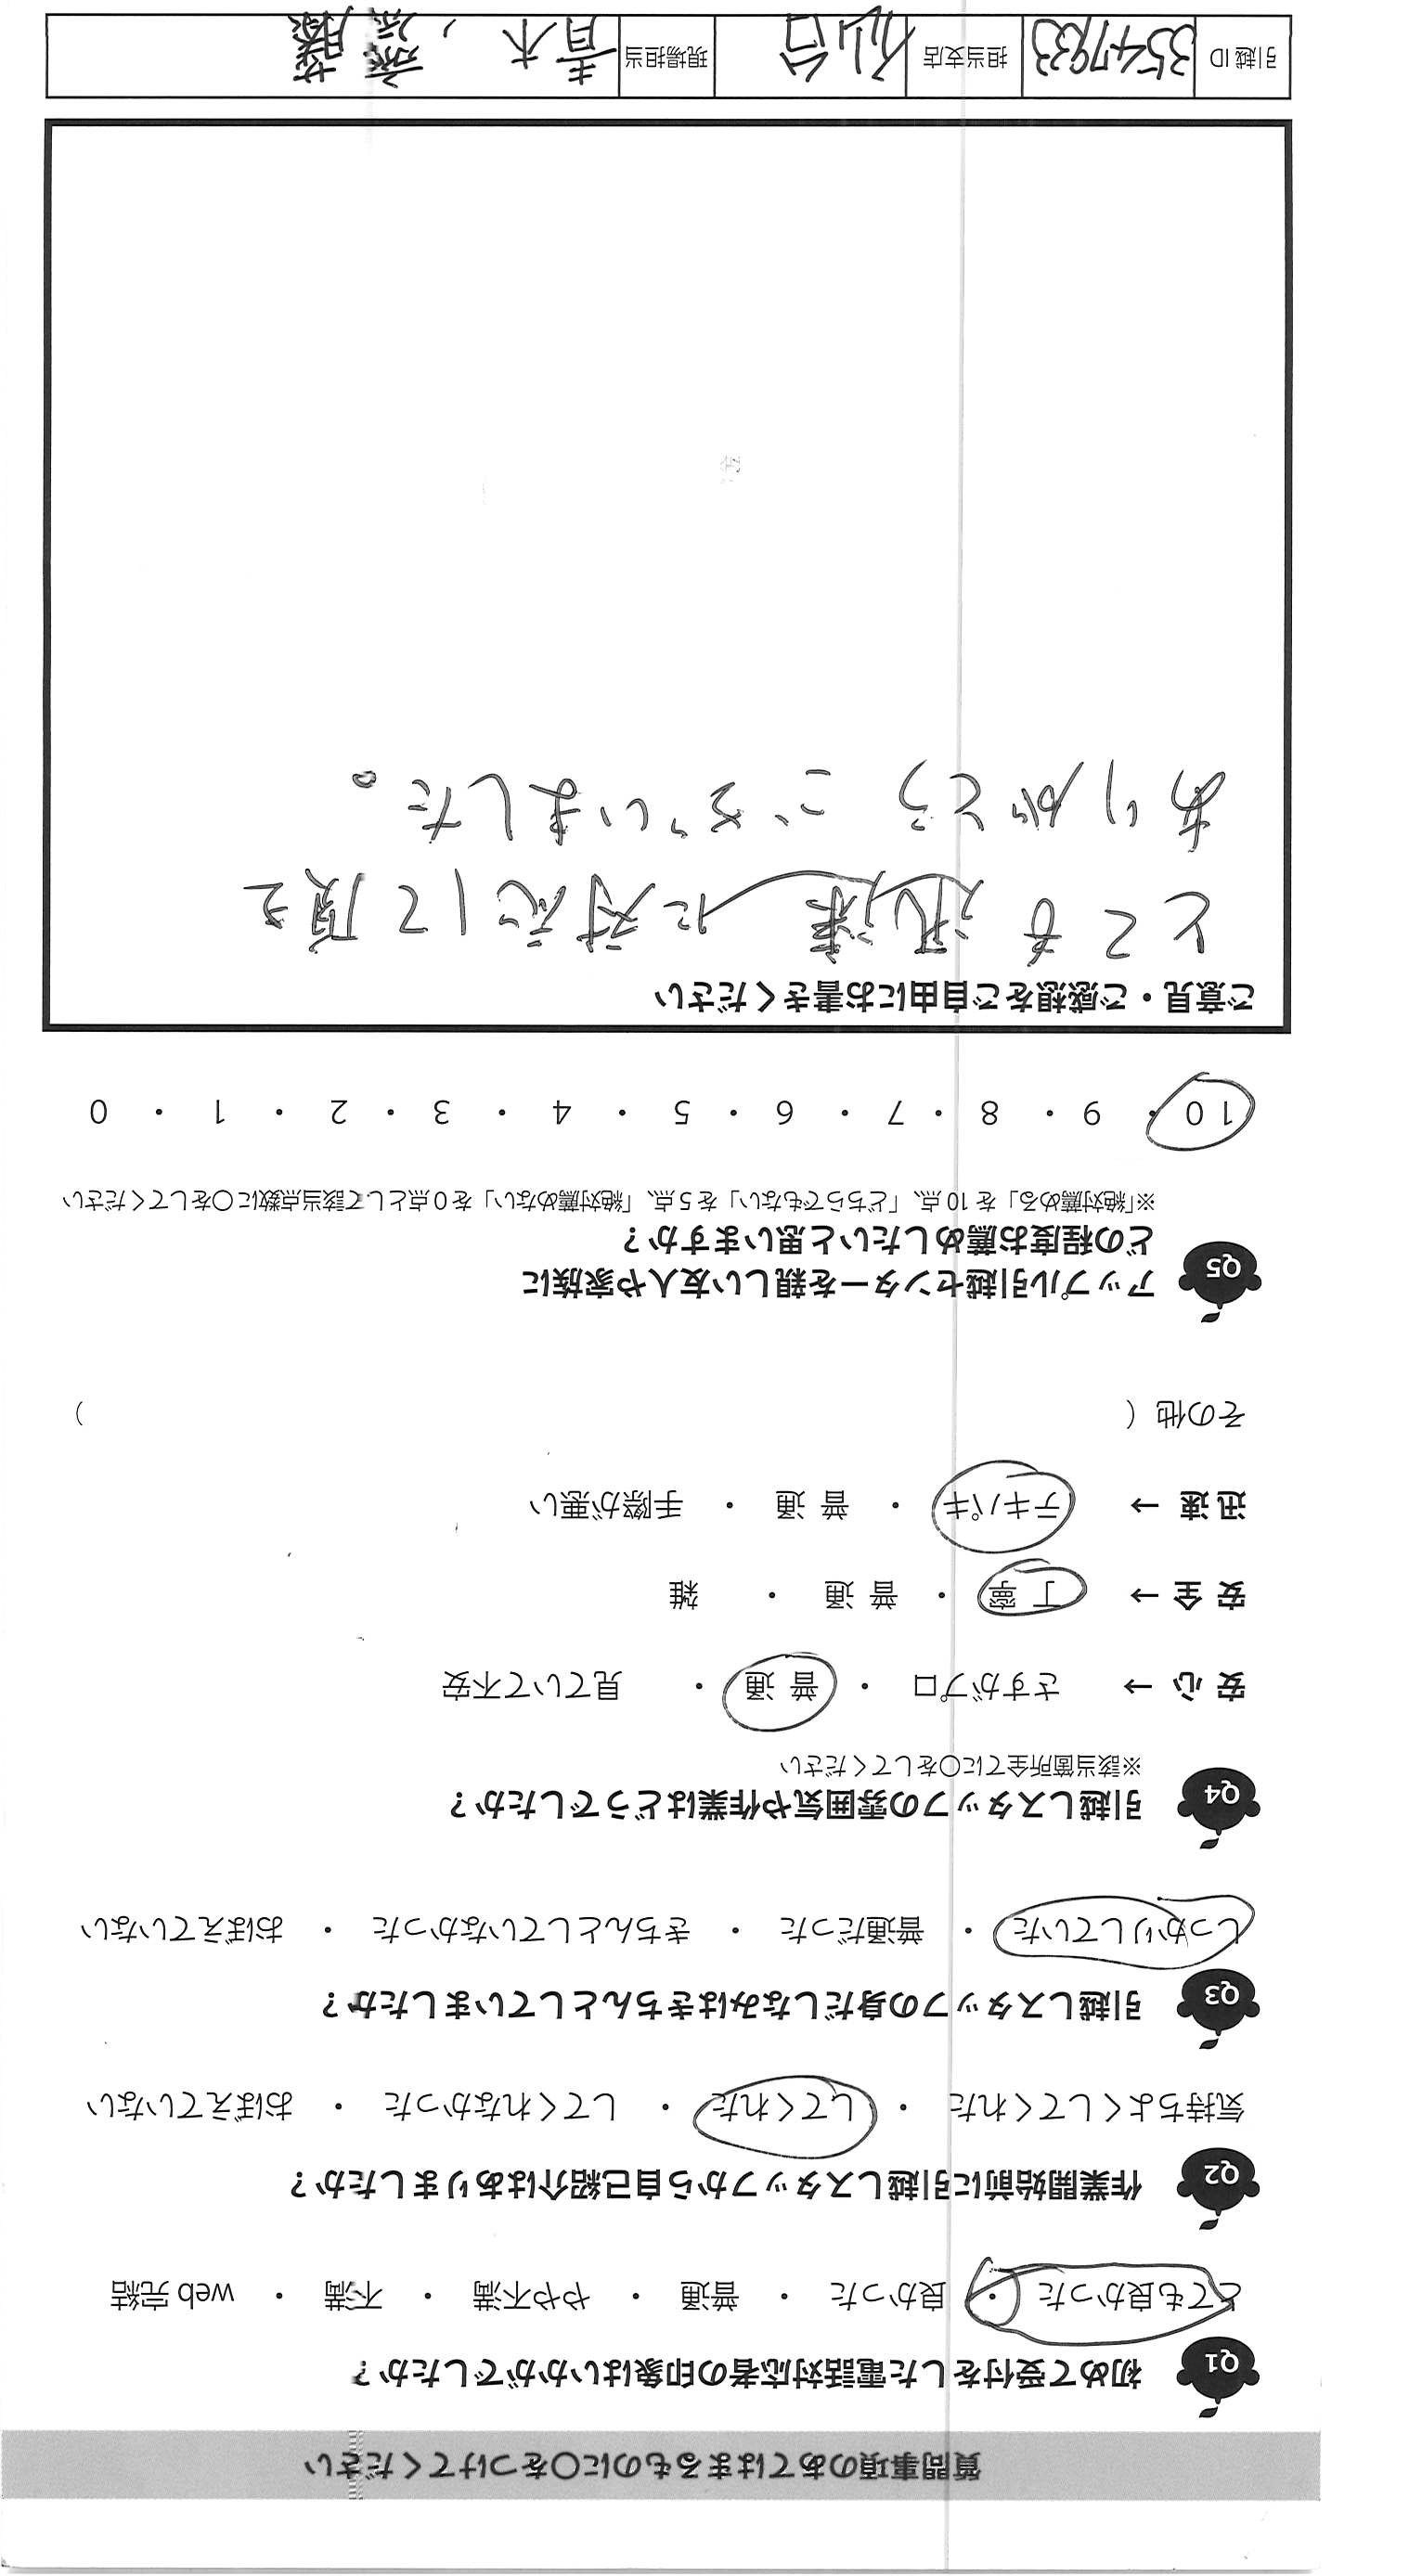 質問事項のあてはまるものに○をつけてください
Q1 初めて受付をした電話対応者の印象はいかがでしたか？
とても良かった ・ 良かった ・ 普通 ・ やや不満 ・ 不満 ・ web 完結
Q2 作業開始前に引越しスタッフから自己紹介はありましたか？
気持ちよくしてくれた ・ してくれた ・ してくれなかった ・ おぼえていない
Q3 引越しスタッフの身だしなみはきちんとしていましたか？
しっかりしていた ・ 普通だった ・ きちんとしていなかった ・ おぼえていない
Q4 引越しスタッフの雰囲気や作業はどうでしたか？
※該当箇所全てに○をしてください
安 心 → さすがプロ ・ 普 通 ・ 見ていて不安
安 全 → 丁 寧 ・ 普 通 ・ 雑
迅 速 → テキパキ ・ 普 通 ・ 手際が悪い
その他（ ）
Q5 アップル引越センターを親しい友人や家族に
どの程度お薦めしたいと思いますか？
※「絶対薦める」を 10 点、「どちらでもない」を 5 点、「絶対薦めない」を 0 点として該当点数に○をしてください
10 ・ 9 ・ 8 ・ 7 ・ 6 ・ 5 ・ 4 ・ 3 ・ 2 ・ 1 ・ 0
ご意見・ご感想をご自由にお書きください
とても迅速に対応して頂き
ありがとうございました。
引越 ID 3547933 担当支店 仙台 現場担当 青木、齋藤